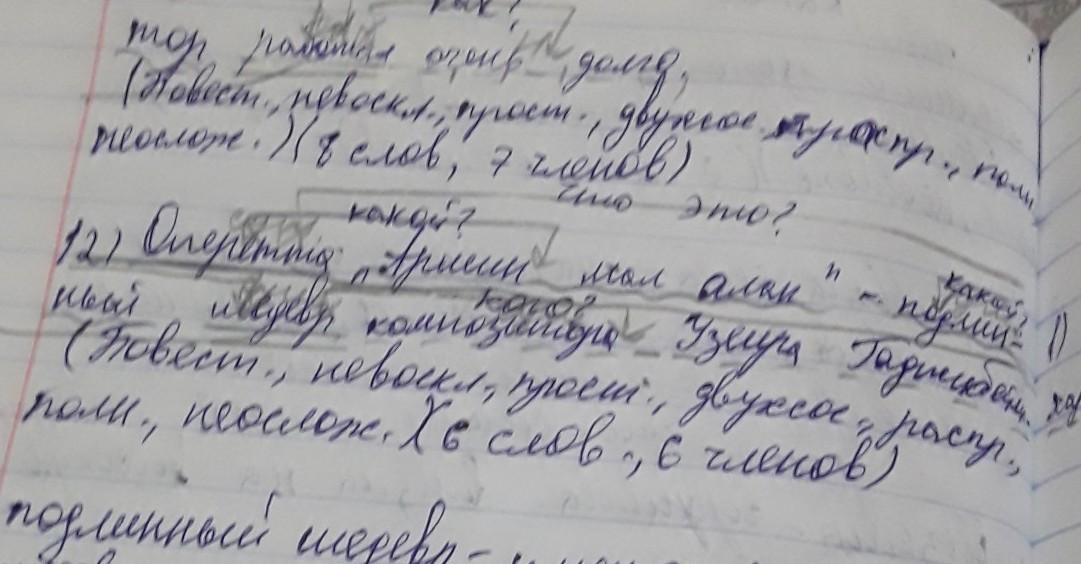 как?
тор работал очень долго,
(Повест., невоскл., прост., двухсос., распр., полн
неослож.) (8 слов, 7 членов)
что это?
какой?
12) Оперетта "Аршин мал алан" - подлин-
какой?
кого?
ный шедевр композитора Узеира Гаджибекова.
(Повест., невоскл., прост., двухсос., распр.,
полн., неослож.) (6 слов., 6 членов)
подлинный шедевр -